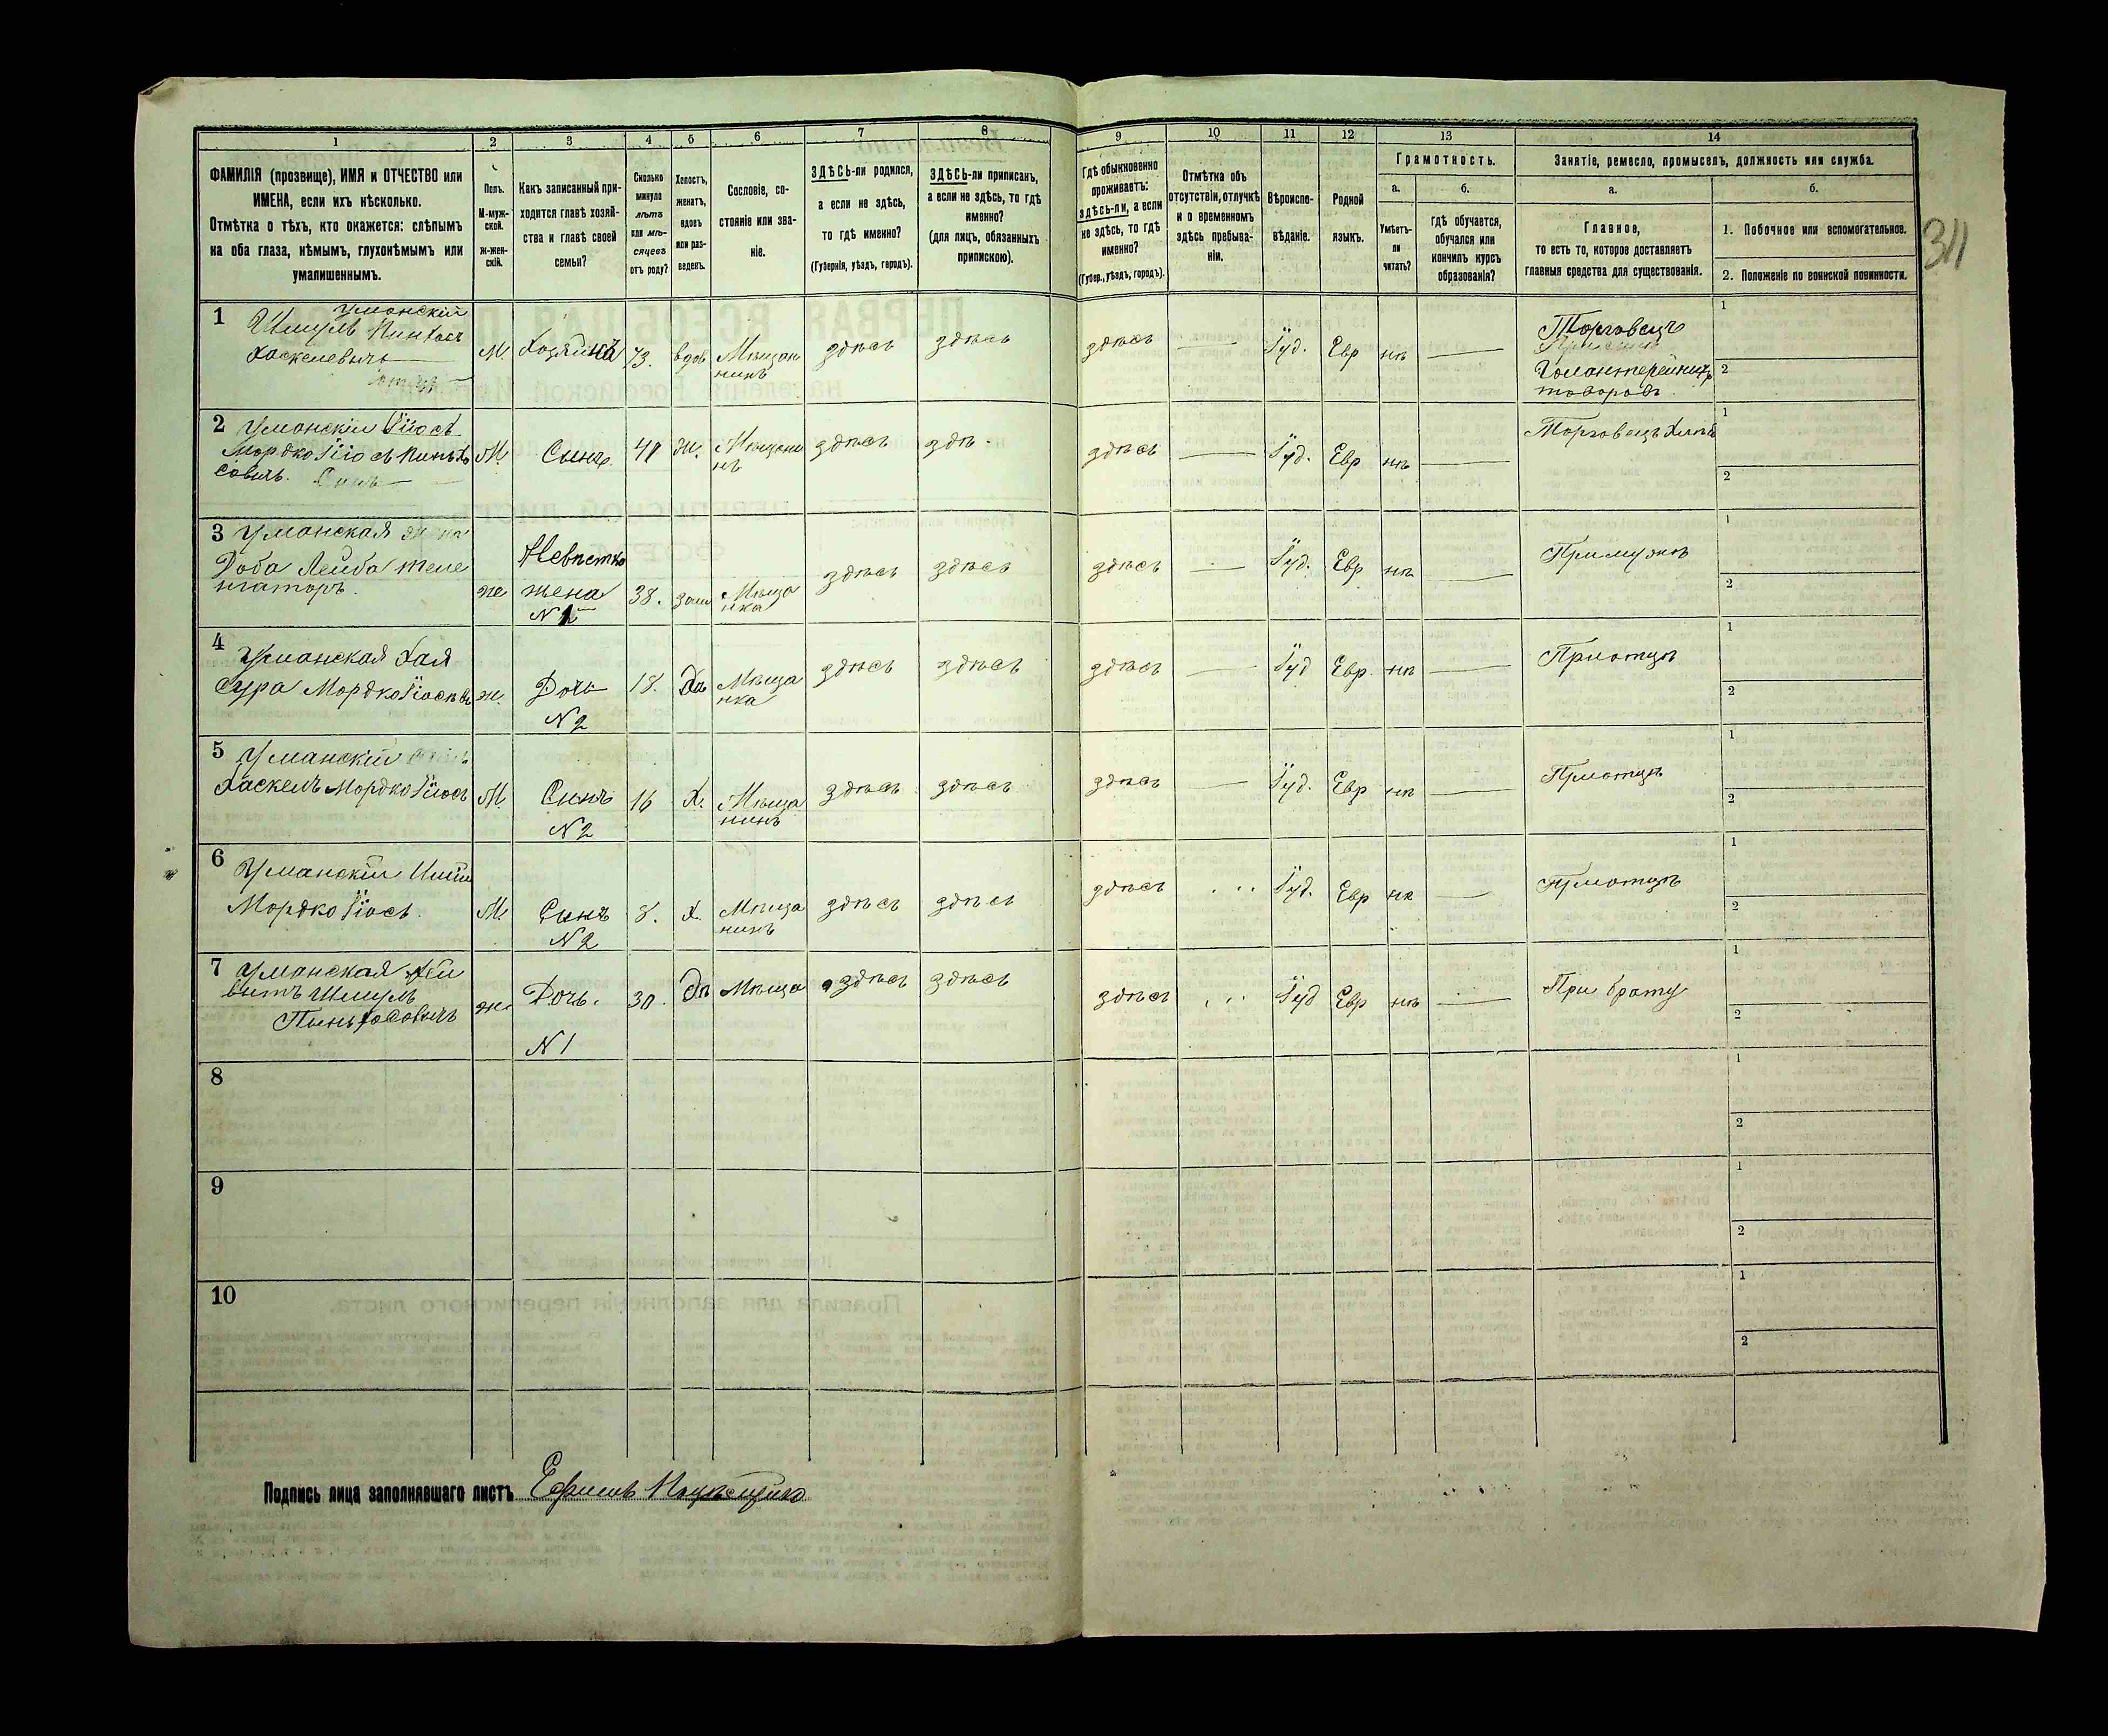 1 2 3 4 5 6 7 8 9 10 11 12 13 14
ФАМИЛІЯ (прозвище), ИМЯ и ОТЧЕСТВО или
ИМЕНА, если ихъ нѣсколько.
Отмѣтка о тѣхъ, кто окажется: слѣпымъ
на оба глаза, нѣмымъ, глухонѣмымъ или
умалишеннымъ.
Полъ.
М-муж-
ской.
Ж-жен-
скій.
Какъ записанный при-
ходится главѣ хозяй-
ства и главѣ своей
семьи?
Сколько
минуло
лѣтъ
или мѣ-
сяцевъ
отъ роду?
Холостъ,
женатъ,
вдовъ
или раз-
веденъ.
Сословіе, со-
стояніе или зва-
ніе.
ЗДѢСЬ-ли родился,
а если не здѣсь,
то гдѣ именно?
(Губернія, уѣздъ, городъ).
ЗДѢСЬ-ли приписанъ,
а если не здѣсь, то гдѣ
именно?
(для лицъ, обязанныхъ
припискою).
Гдѣ обыкновенно
проживаетъ:
здѣсь-ли, а если
не здѣсь, то гдѣ
именно?
(Губер., уѣздъ, городъ).
Отмѣтка объ
отсутствіи, отлучкѣ
и о временномъ
здѣсь пребыва-
ніи.
Вѣроиспо-
вѣданіе.
Родной
языкъ.
Грамотность.
а. б.
Умѣетъ-
ли
читать?
гдѣ обучается,
обучался или
кончилъ курсъ
образованія?
Занятіе, ремесло, промыселъ, должность или служба.
а. б.
Главное,
то есть то, которое доставляетъ
главныя средства для существованія.
1. Побочное или вспомогательное.
2. Положеніе по воинской повинности.
311
1 Уманскій
Шмуль Пинхосъ
Хаскелевичъ
М Хозяинъ 73. вдов Мѣщан
нинъ здѣсь здѣсь здѣсь — Іуд. Евр нѣ —
Торговецъ
Голантерейныхъ
товаровъ
1
2
2 Уманскій Іось
Мордко Іось Пинхо
совичъ. Сынъ
М. Сынъ 41 Ж. Мѣщани
нъ здѣсь здѣ - здѣсь — Іуд. Евр нѣ —
Торговецъ
1
2
3 Уманская жена
Доба Лейба
Же Невѣстка
жена
N 38. зам Мѣща
нка здѣсь здѣсь здѣсь — Іуд. Евр нѣ —
При мужѣ
1
2
4 Уманская Хая
Сура Мордко
ж. Дочь
N 2 18. Дѣ Мѣща
нка здѣсь здѣсь здѣсь — Іуд Евр. нѣ —
При отцѣ
1
2
5 Уманскій
Хаскель Мордко Іось
М Сынъ
N 2 16 Х. Мѣща
нинъ здѣсь здѣсь здѣсь — Іуд. Евр нѣ —
При отцѣ
1
2
6 Уманскій
Мордко Іось.
М. Сынъ
N 2 8. х. Мѣща
нинъ здѣсь здѣсь здѣсь Іуд. Евр нѣ —
При отцѣ
1
2
7 Уманская
Шмуль
Пиньхосовичъ
же Дочь.
N 1 30. Дѣ Мѣща здѣсь здѣсь здѣсь Іуд Евр нѣ —
При брату
1
2
8
1
2
9
1
2
10
1
2
Подпись лица заполнявшаго листъ Ефимъ